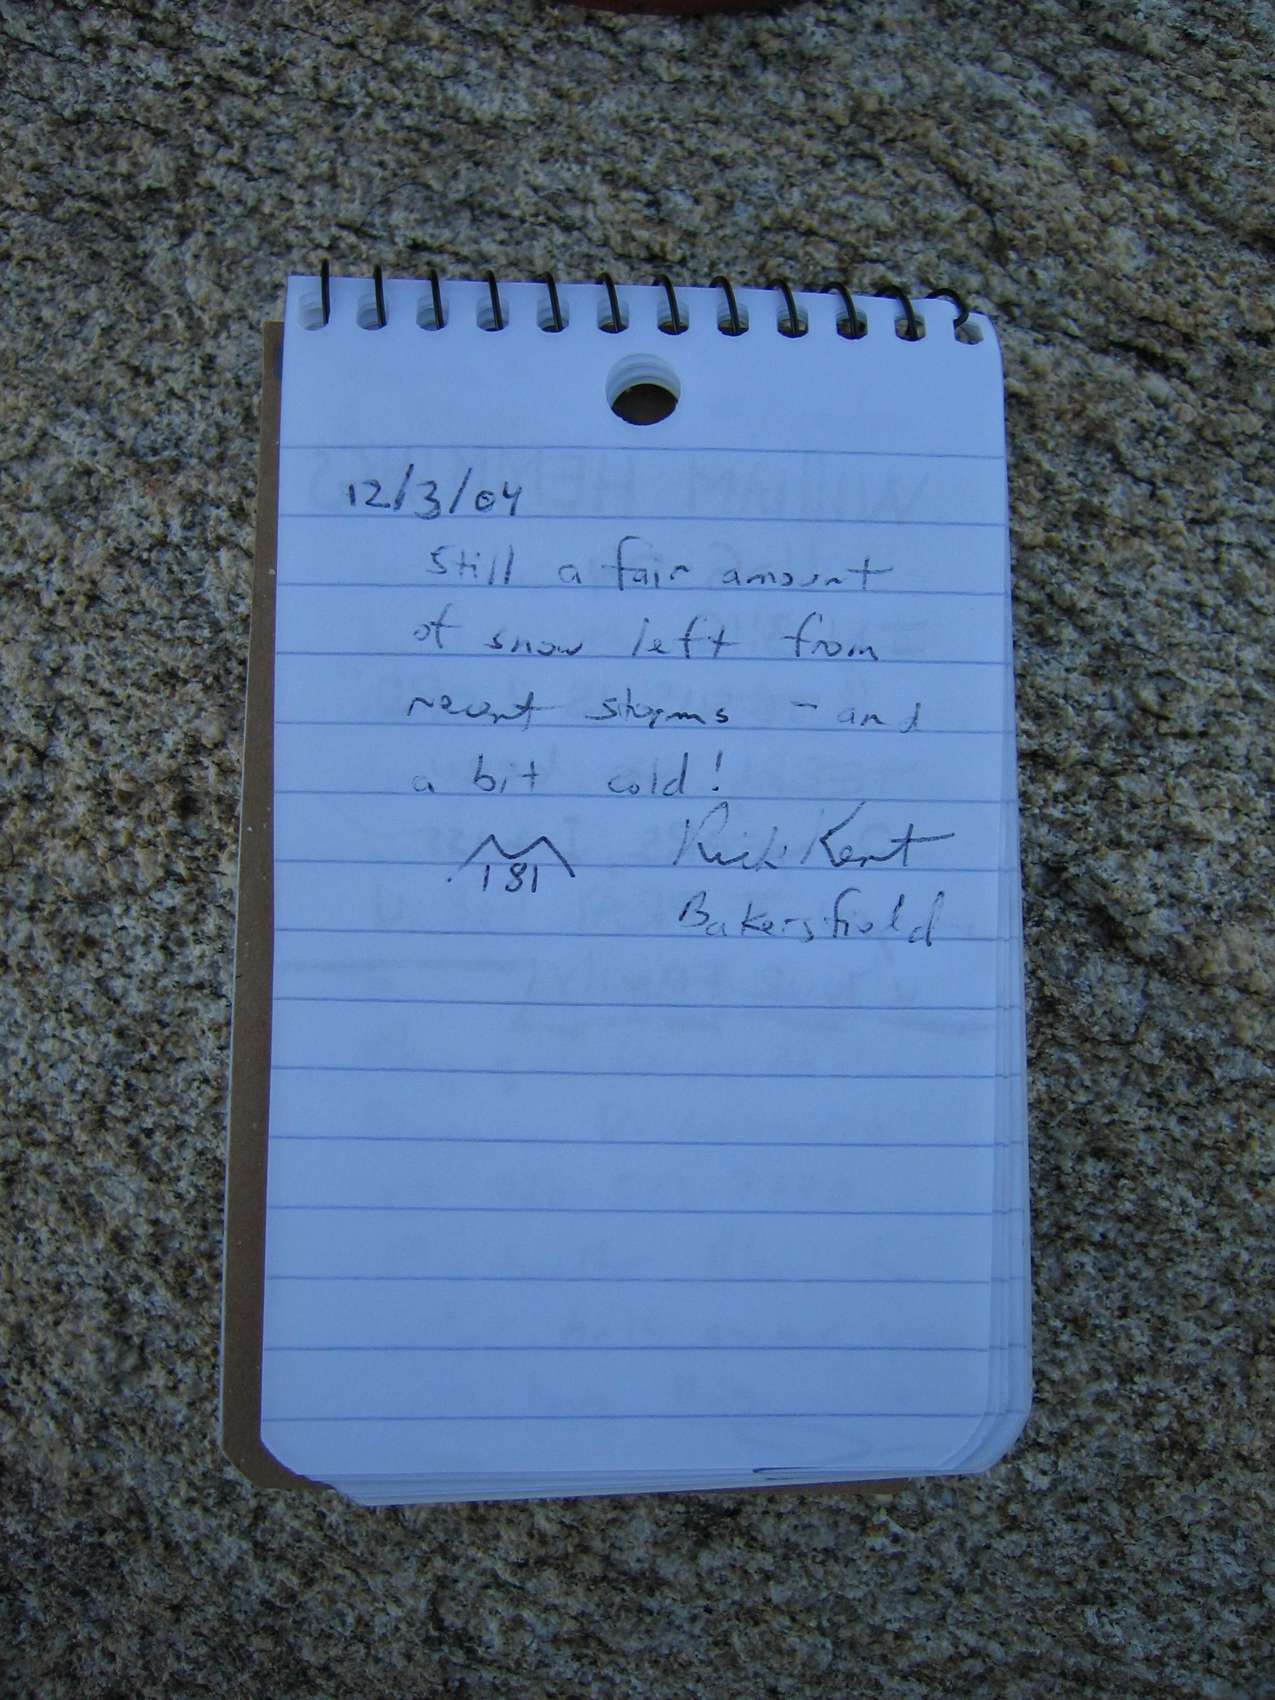 12/3/04
Still a fair amount
of snow left from
recent storms - and
a bit cold!
181 Rick Kent
Bakersfield